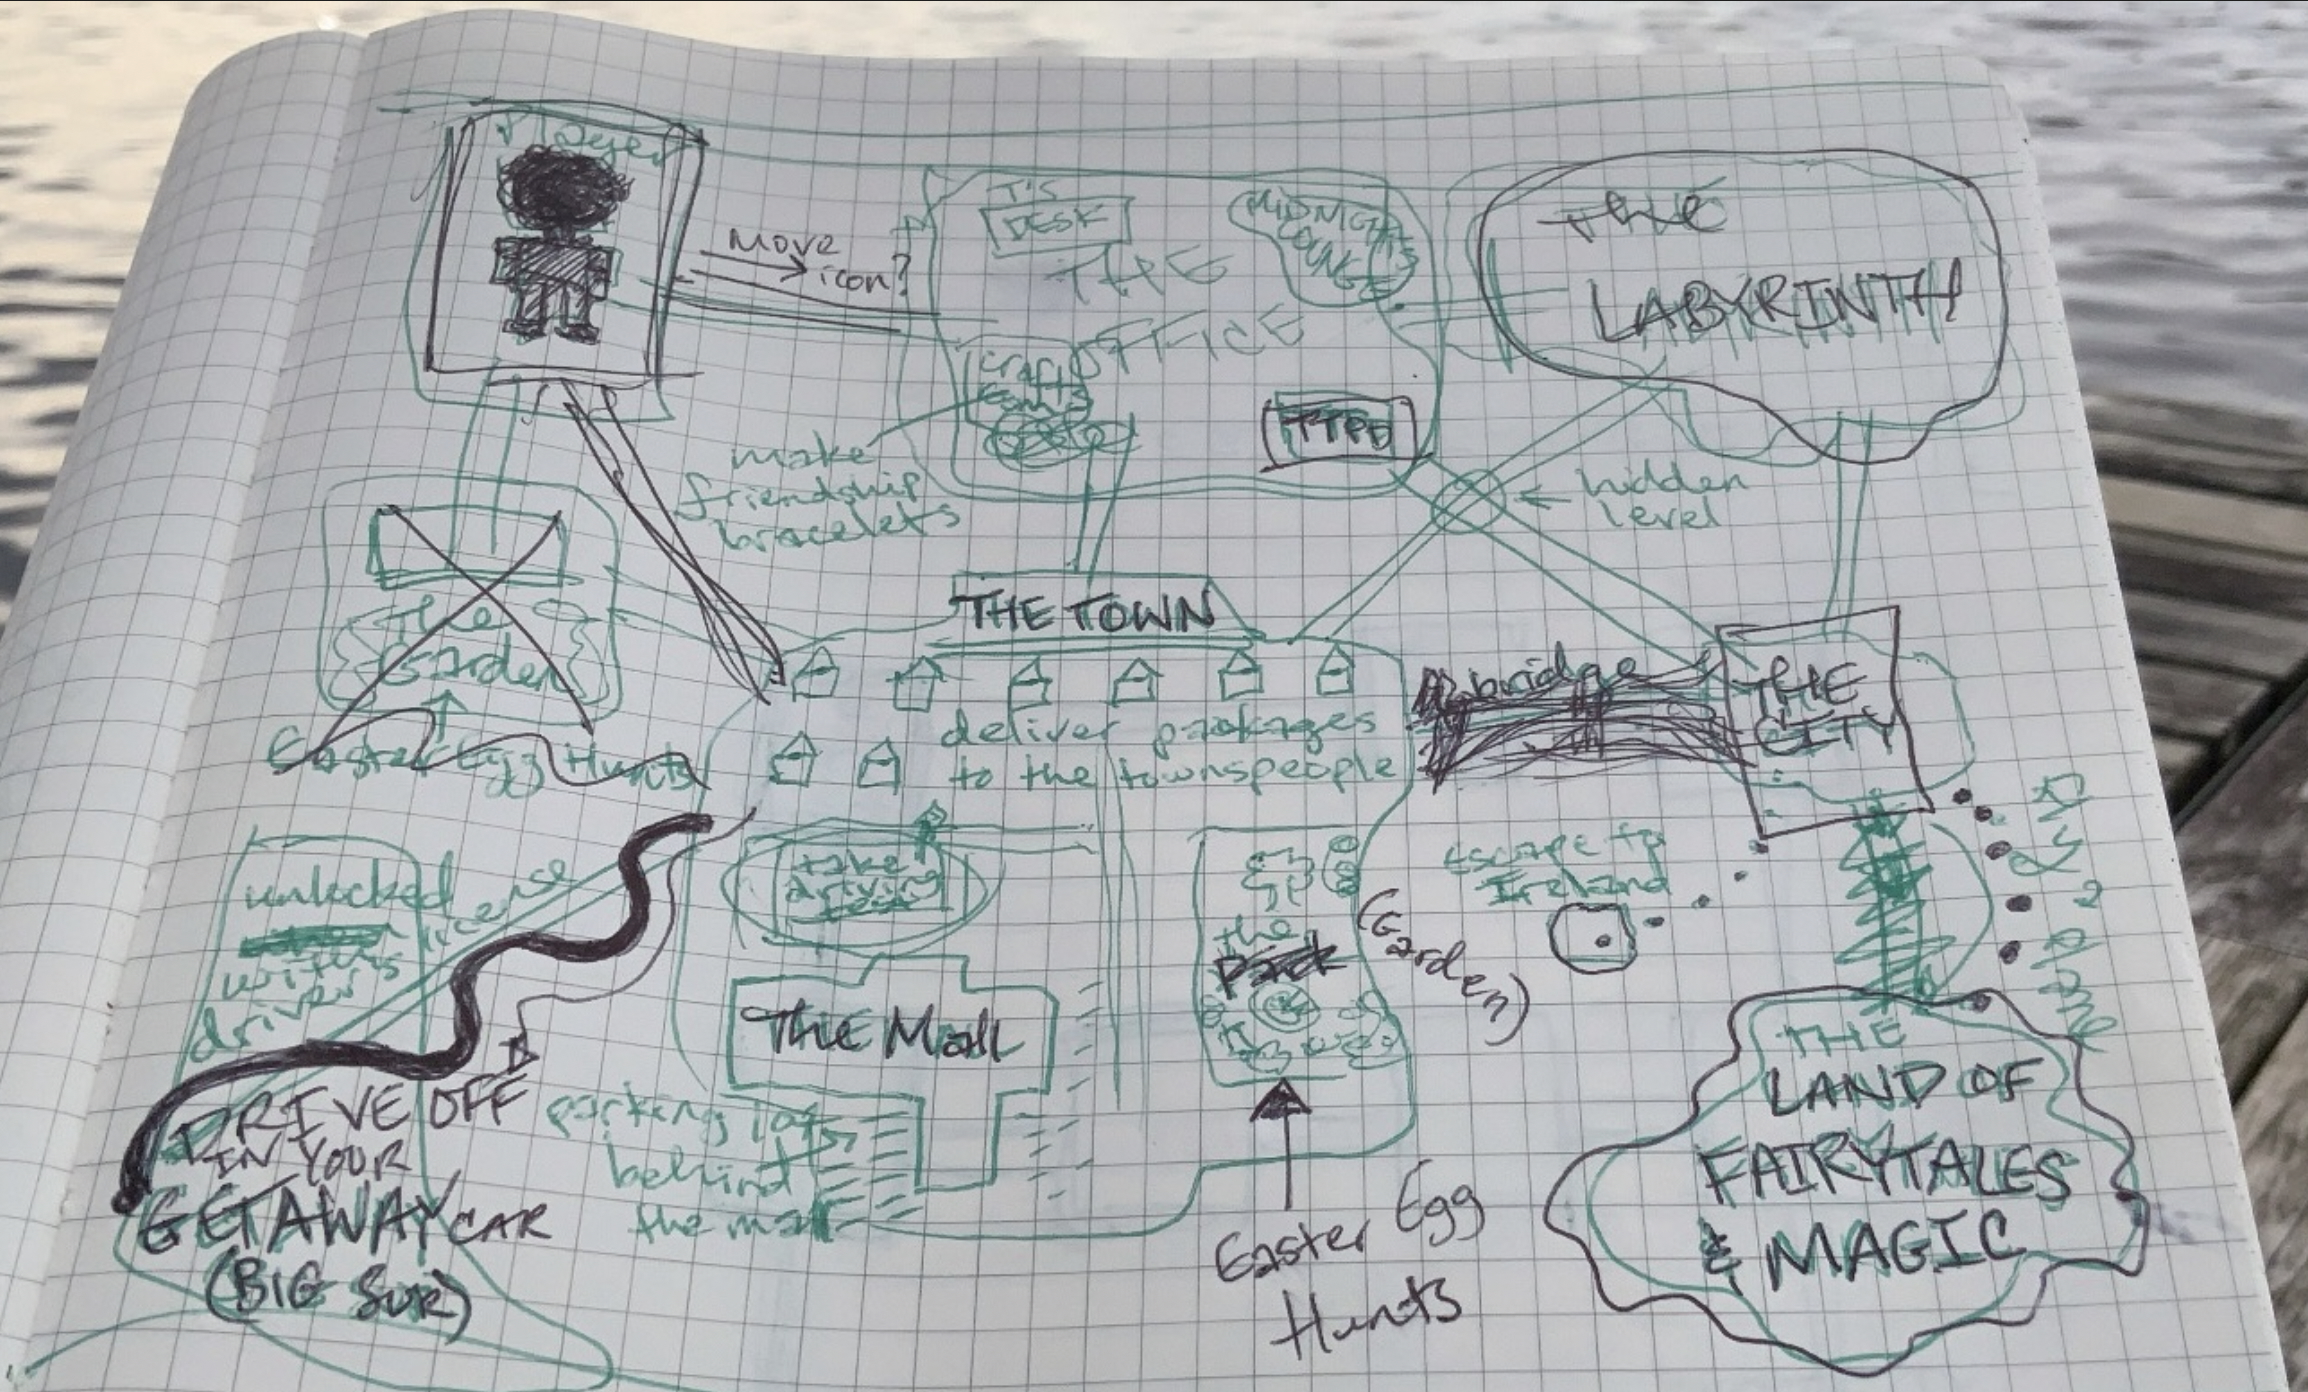 Player
MOVE
icon?
T'S
DESK
MIDNIGHTS
LOUNGE
THE
OFFICE
crafts
TTPD
make
friendship
bracelets
THE
LABYRINTH
hidden
level
The
Garden
Easter Egg Hunts
THE TOWN
deliver packages
to the townspeople
bridge
THE
CITY
unlocked
with
drivers
license
take
driving
test
the
Park
(Garden)
escape to
Ireland
fly 2 plane
The Mall
DRIVE OFF
IN YOUR
GETAWAY CAR
(BIG SUR)
parking lot
behind
the mall
Easter Egg
Hunts
THE
LAND OF
FAIRYTALES
& MAGIC